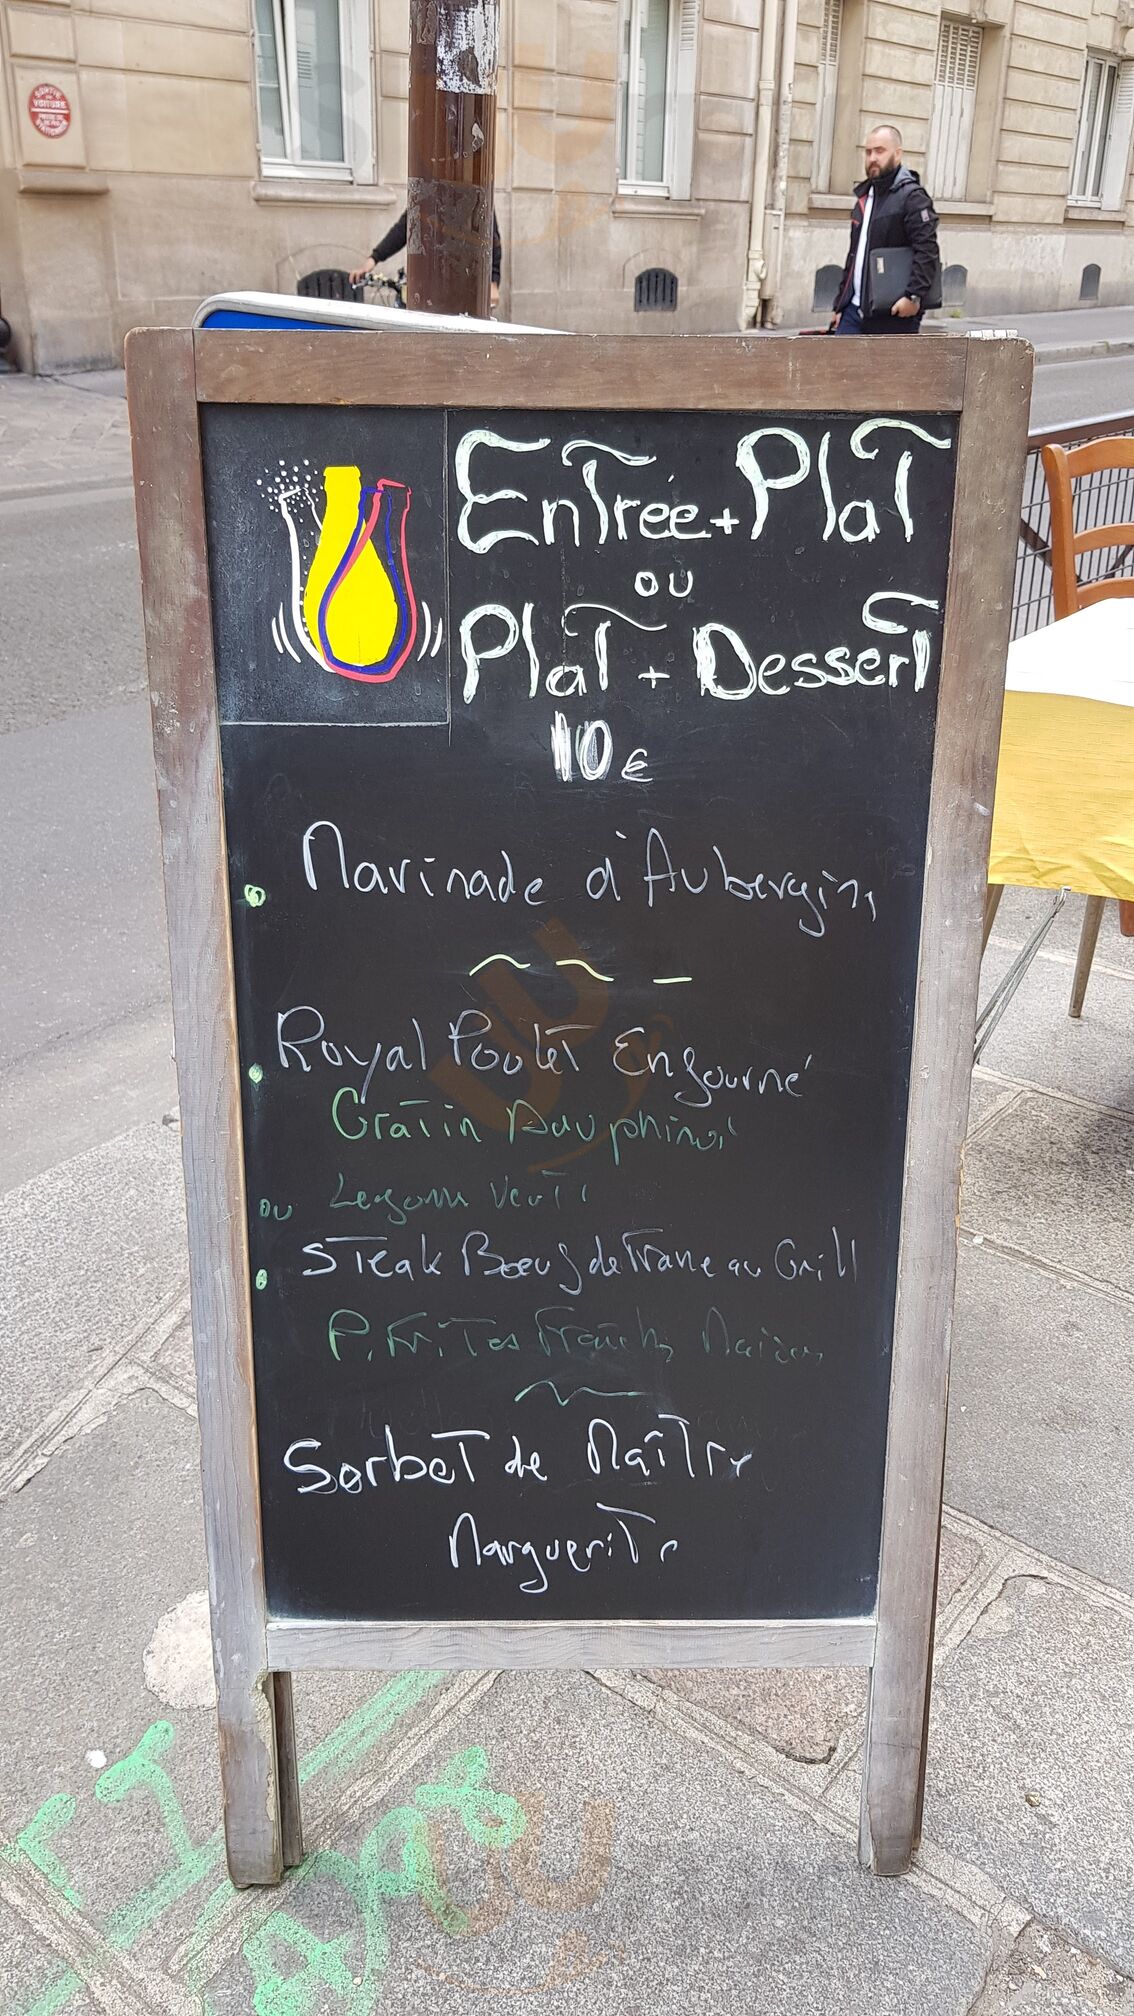 SORTIE
DE
VOITURE
STATIONNER
Entrée + Plat
ou
Plat + Dessert
10 €
Marinade d'Aubergine
Royal Poulet Enfourné
Gratin Dauphinoi
ou Legume Verti
Steak Bœuf de France au Grill
P. Frites Fraîche Maison
Sorbet de Maître
Marguerite